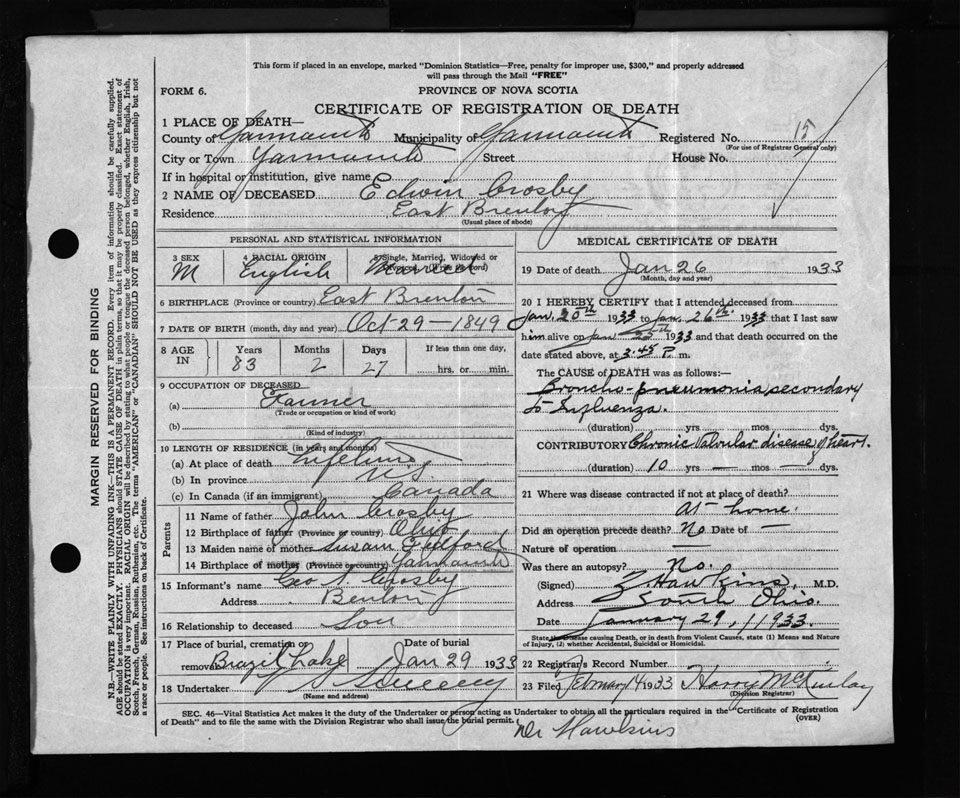 This form if placed in an envelope, marked "Dominion Statistics—Free, penalty for improper use, $300," and properly addressed
will pass through the Mail "FREE"
FORM 6.
PROVINCE OF NOVA SCOTIA
CERTIFICATE OF REGISTRATION OF DEATH
1 PLACE OF DEATH—
County of Yarmouth Municipality of Yarmouth Registered No. 15
(For use of Registrar General only)
City or Town Yarmouth Street House No.
If in hospital or institution, give name
2 NAME OF DECEASED Edwin Crosby
Residence East Brenton
(Usual place of abode)
PERSONAL AND STATISTICAL INFORMATION
3 SEX 4 RACIAL ORIGIN 5 Single, Married, Widowed or
Divorced (write the word)
M English Married
6 BIRTHPLACE (Province or country) East Brenton
7 DATE OF BIRTH (month, day and year) Oct 29—1849
8 AGE IN Years Months Days If less than one day,
83 2 27 hrs. or min.
9 OCCUPATION OF DECEASED
(a) Farmer
(Trade or occupation or kind of work)
(b)
(Kind of industry)
10 LENGTH OF RESIDENCE (in years and months)
(a) At place of death Lifetime
(b) In province N.S
(c) In Canada (if an immigrant) Canada
Parents
11 Name of father John Crosby
12 Birthplace of father (Province or country) Ohio
13 Maiden name of mother Susan
14 Birthplace of mother (Province or country) Yarmouth
15 Informant's name Geo N Crosby
Address Brenton
16 Relationship to deceased Son
17 Place of burial, cremation or Date of burial
removal Brazil Lake Jan 29 1933
18 Undertaker Sweeny
(Name and address)
MEDICAL CERTIFICATE OF DEATH
19 Date of death Jan 26 1933
(Month, day and year)
20 I HEREBY CERTIFY that I attended deceased from
Jan. 20th 1933 to Jan. 26th 1933 that I last saw
him alive on Jan 1933 and that death occurred on the
date stated above, at 3:45 P. m.
The CAUSE of DEATH was as follows:
Broncho-pneumonia, secondary
to Influenza.
(duration) yrs mos dys.
CONTRIBUTORY Chronic Valvular disease of heart.
(duration) 10 yrs — mos — dys.
21 Where was disease contracted if not at place of death?
At home.
Did an operation precede death? No Date of —
Nature of operation —
Was there an autopsy? No.
(Signed) Z Hawkins, M.D.
Address South Ohio.
Date January 29, 1933.
State disease causing Death, or in death from Violent Causes, state (1) Means and Nature
of Injury, (2) whether Accidental, Suicidal or Homicidal.
22 Registrar's Record Number
23 Filed February 14 1933 Harry McKinlay
(Division Registrar)
SEC. 46—Vital Statistics Act makes it the duty of the Undertaker or person acting as Undertaker to obtain all the particulars required in the "Certificate of Registration
of Death" and to file the same with the Division Registrar who shall issue the burial permit.
(OVER)
Dr Hawkins
MARGIN RESERVED FOR BINDING
N.B.—WRITE PLAINLY WITH UNFADING INK—THIS IS A PERMANENT RECORD. Every item of information should be carefully supplied.
AGE should be stated EXACTLY. PHYSICIANS should STATE CAUSE OF DEATH in plain terms, so that it may be properly classified. Exact statement of
OCCUPATION is very important. RACIAL ORIGIN will be described by stating to what people or tongue the deceased person belonged, whether English, Irish,
Scotch, French, German, Russian, Ruthenian, etc. The terms "AMERICAN" or "CANADIAN" SHOULD NOT BE USED as they express citizenship but not
a race or people. See instructions on back of Certificate.